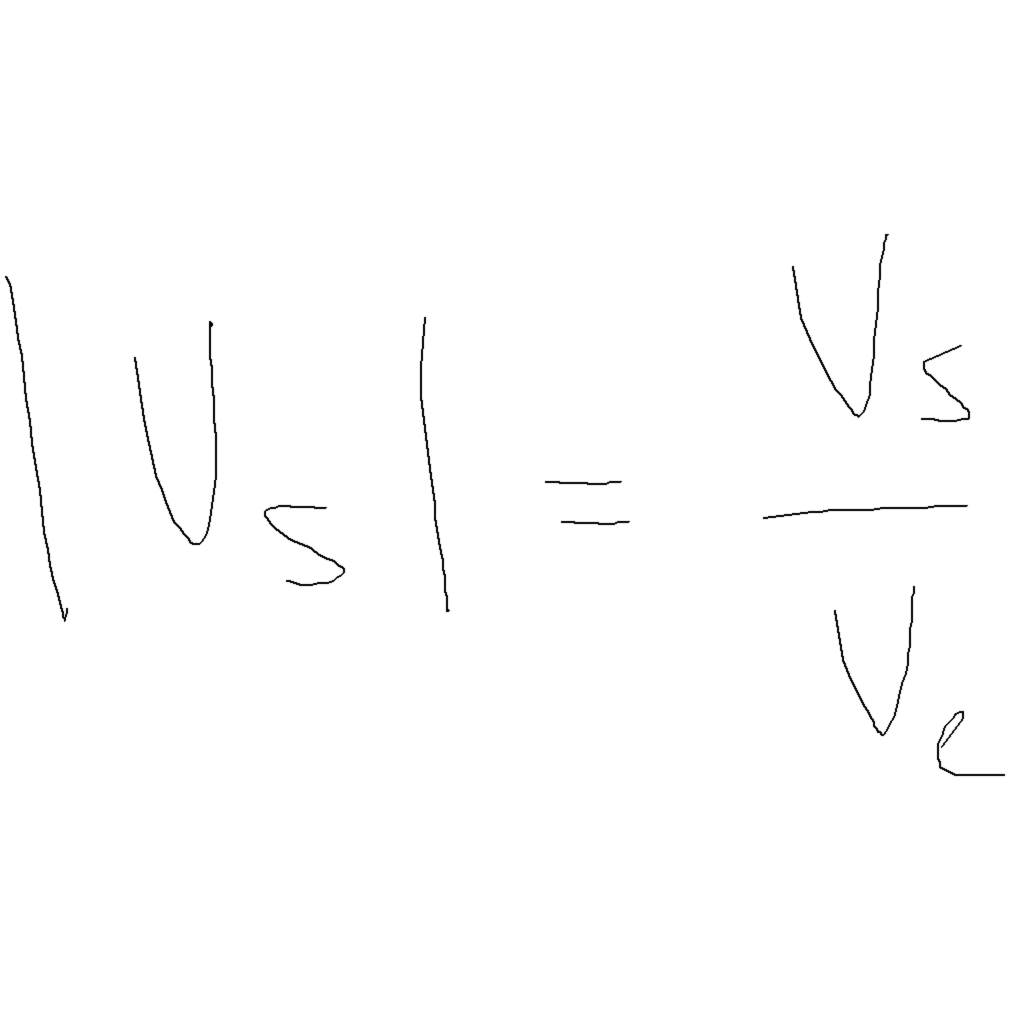 |U_s| = \frac{V_s}{V_e}